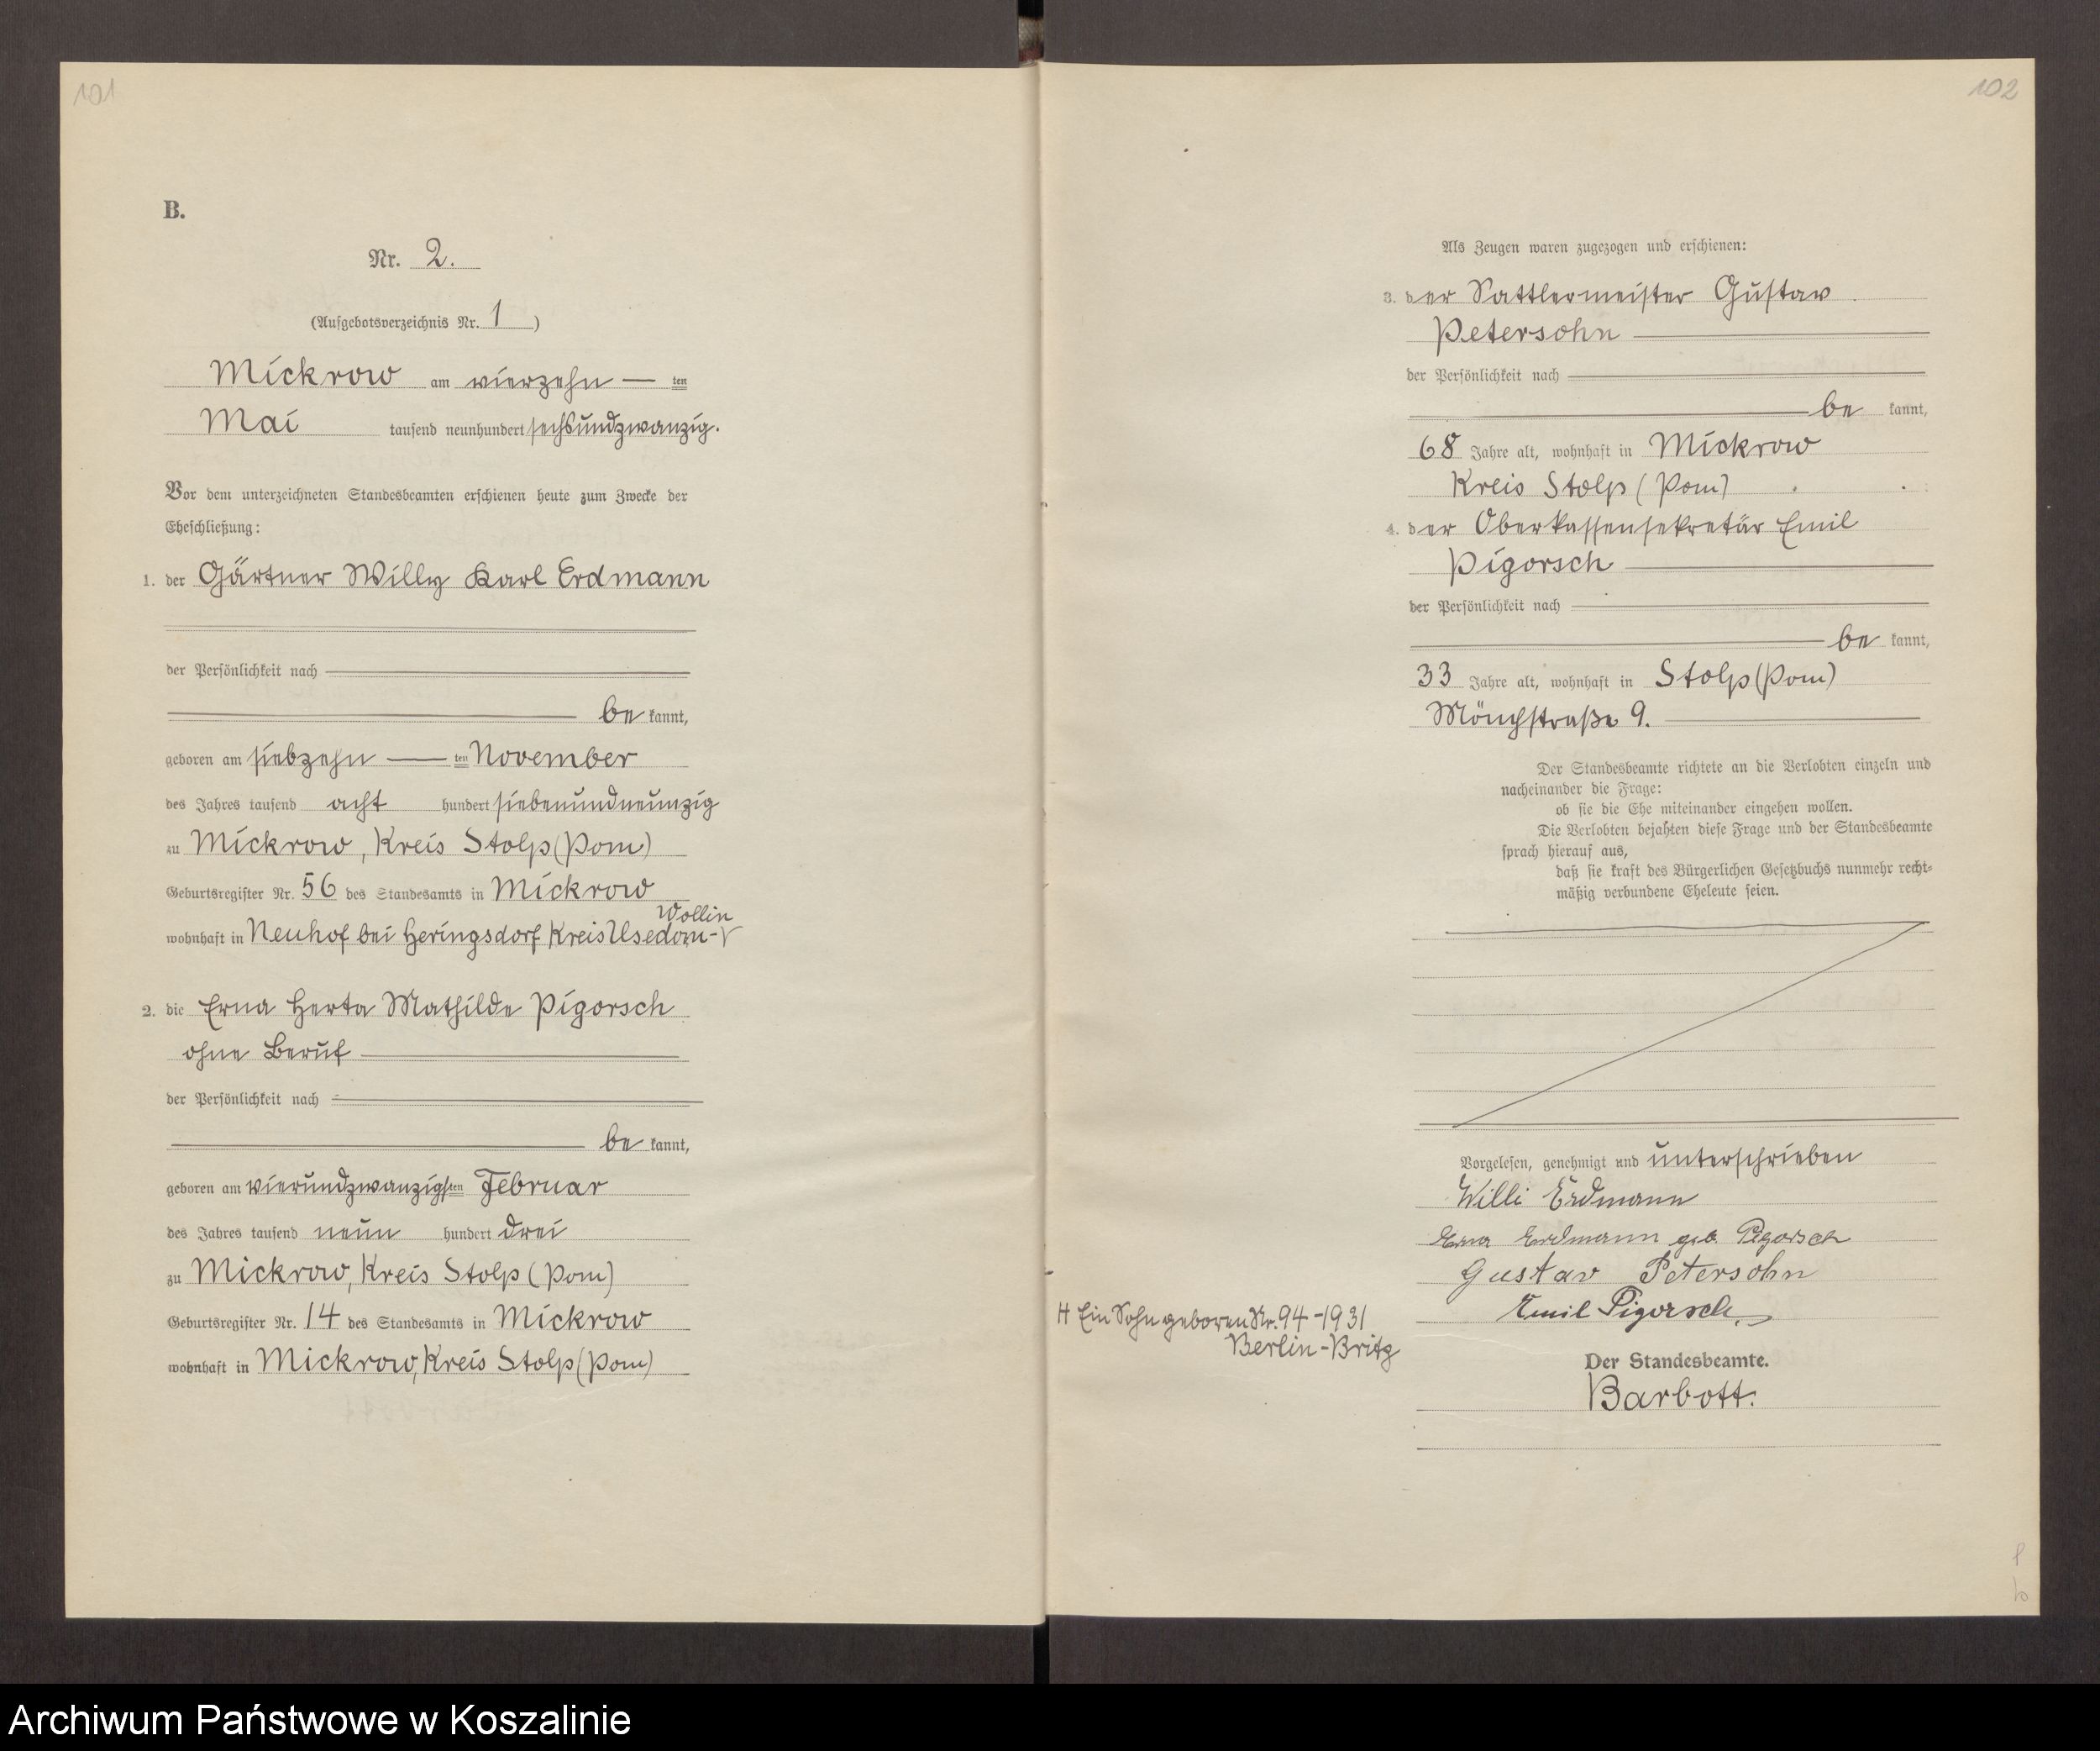 101
B.
Nr. 2.
(Aufgebotsverzeichnis Nr. 1)
Mickrow am vierzehn — ten
Mai tausend neunhundert sechsundzwanzig.
Vor dem unterzeichneten Standesbeamten erschienen heute zum Zwecke der
Eheschließung:
1. der Gärtner Willy Karl Erdmann
der Persönlichkeit nach
be kannt,
geboren am siebzehn — ten November
des Jahres tausend acht hundert siebenundneunzig
zu Mickrow, Kreis Stolp (Pom)
Geburtsregister Nr. 56 des Standesamts in Mickrow
Wollin
wohnhaft in Neuhof bei Heringsdorf Kreis Usedom-
2. die Erna Herta Mathilde Pigorsch
ohne Beruf
der Persönlichkeit nach
be kannt,
geboren am vierundzwanzigsten Februar
des Jahres tausend neun hundert drei
zu Mickrow, Kreis Stolp (Pom)
Geburtsregister Nr. 14 des Standesamts in Mickrow
wohnhaft in Mickrow, Kreis Stolp (Pom)
102
Als Zeugen waren zugezogen und erschienen:
3. der Sattlermeister Gustav
Petersohn
der Persönlichkeit nach
be kannt,
68 Jahre alt, wohnhaft in Mickrow
Kreis Stolp (Pom)
4. der Oberkassensekretär Emil
Pigorsch
der Persönlichkeit nach
be kannt,
33 Jahre alt, wohnhaft in Stolp (Pom)
Mönchstraße 9.
Der Standesbeamte richtete an die Verlobten einzeln und
nacheinander die Frage:
ob sie die Ehe miteinander eingehen wollen.
Die Verlobten bejahten diese Frage und der Standesbeamte
sprach hierauf aus,
daß sie kraft des Bürgerlichen Gesetzbuchs nunmehr recht-
mäßig verbundene Eheleute seien.
Vorgelesen, genehmigt und unterschrieben
Willi Erdmann
Erna Erdmann geb. Pigorsch
Gustav Petersohn
Emil Pigorsch.
Ein Sohn geboren Nr. 94-1931
Berlin-Britz
Der Standesbeamte.
Barbott.
Archiwum Państwowe w Koszalinie